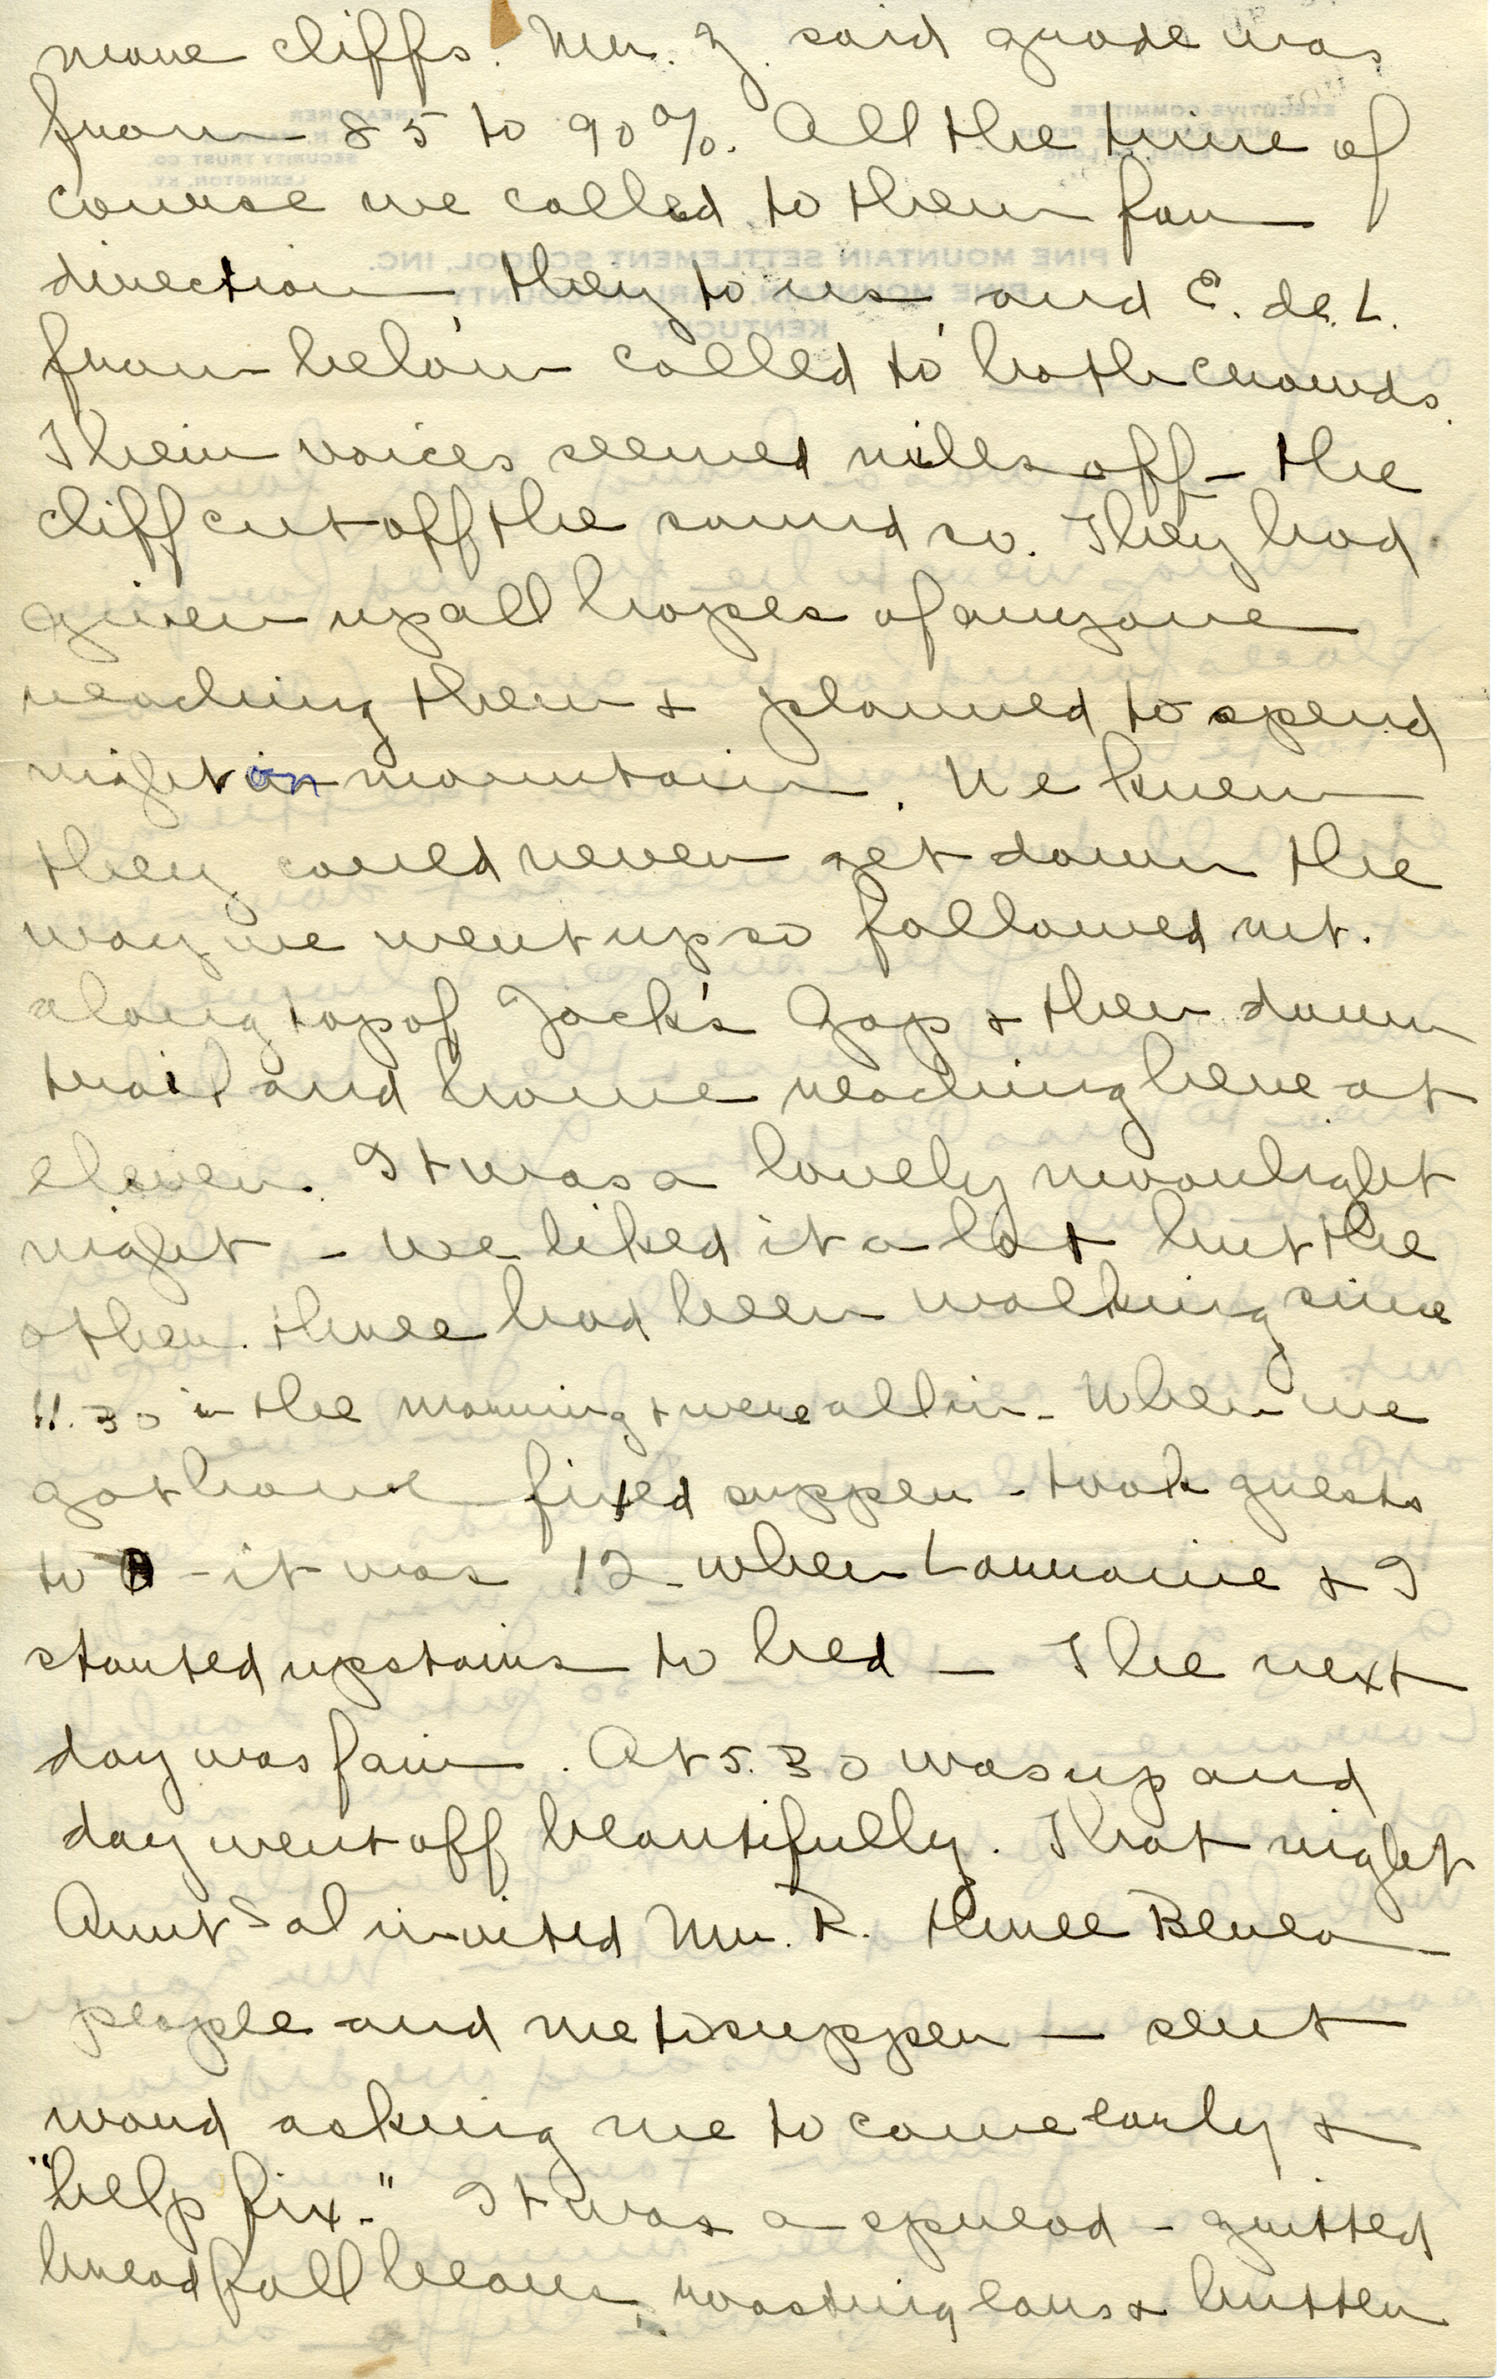 more cliffs. Mr. Z. said grade was
from 85 to 90%. All the time of
course we called to them for
direction, they to us, and E. de. L.
from below called to both crowds.
Their voices seemed miles off - the
cliff cut off the sound so. They had
given up all hopes of anyone
reaching them & planned to spend
night on mountain. We knew
they could never get down the
way we went up so followed mt.
along top of Jack's Gap & then down
trail and home reaching here at
eleven. It was a lovely moonlight
night - we liked it a lot but the
other three had been walking since
11.30 in the morning & were all in. When we
got home fixed supper - took guests
to - it was 12 when Lorraine & I
started upstairs to bed - The next
day was fair. At 5.30 was up and
day went off beautifully. That night
Aunt Sal invited Mr. R. three Berea
people and me to supper - sent
word asking me to come early &
"help fix." It was a spread - gritted
bread fall beans, roasting ears & butter
EXECUTIVE COMMITTEE
TREASURER
SECURITY TRUST CO.
LEXINGTON, KY.
PINE MOUNTAIN SETTLEMENT SCHOOL, INC.
PINE MOUNTAIN, HARLAN COUNTY
KENTUCKY